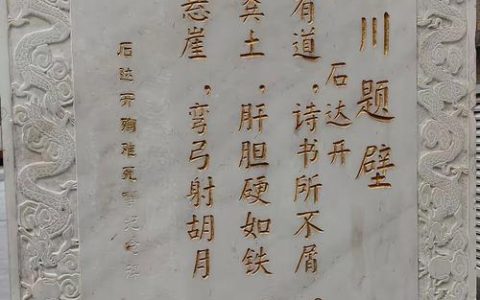 川题壁
石达开
有道，诗书所不屑
粪土，肝胆硬如铁
悬崖，弯弓射胡月
石达开殉难